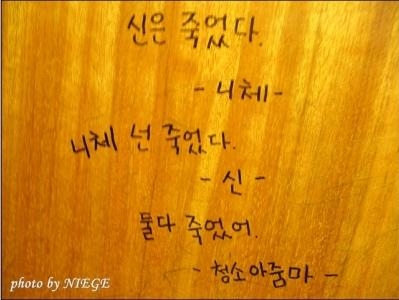 신은 죽었다.
- 니체 -
니체 넌 죽었다.
- 신 -
둘다 죽었어.
- 청소아줌마 -
photo by NIEGE